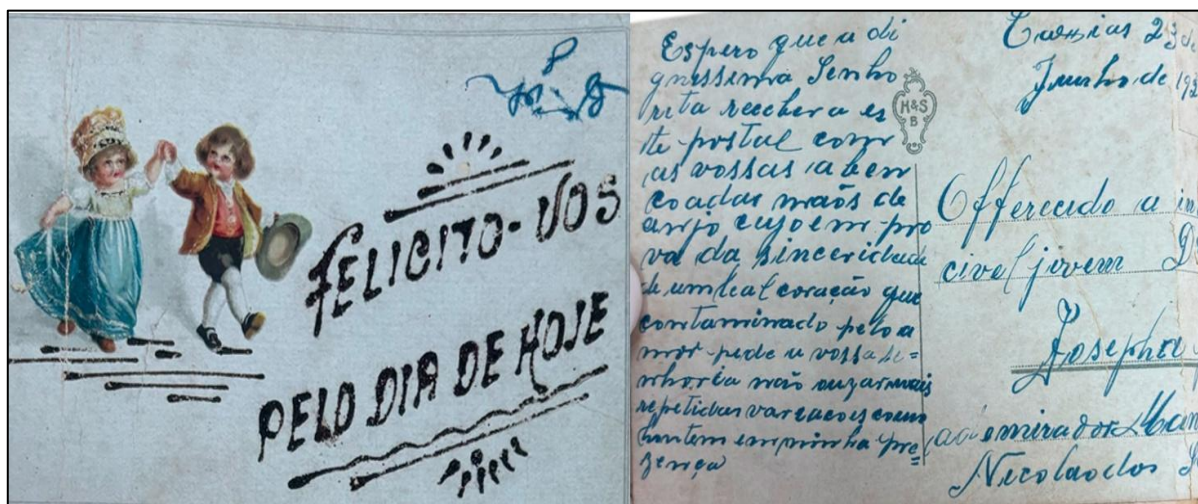 FELICITO-VOS
PELO DIA DE HOJE
Espero que a di
gnissima Senho
rita recebera es
te postal com
as vossas aben
coadas mãos de
anjo cujo em pro
va da sinceridade
de um leal coração que
contaminado pelo a
mor pede a vossa se=
nhoria não mais
repetidas
hontem em minha pre=
zença
H&S
B
Caxias 23 de
Junho de 192
Offerecido a in
civel jovem D
Josepha
admirador Man
Nicolao dos S